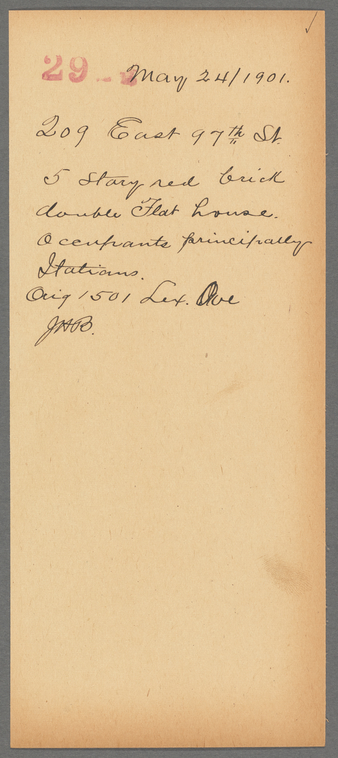 29 May 24/1901.
209 East 97th St.
5 Story red brick
double Flat house.
Occupants principally
Italians.
Orig 1501 Lex. Ave
JHB.